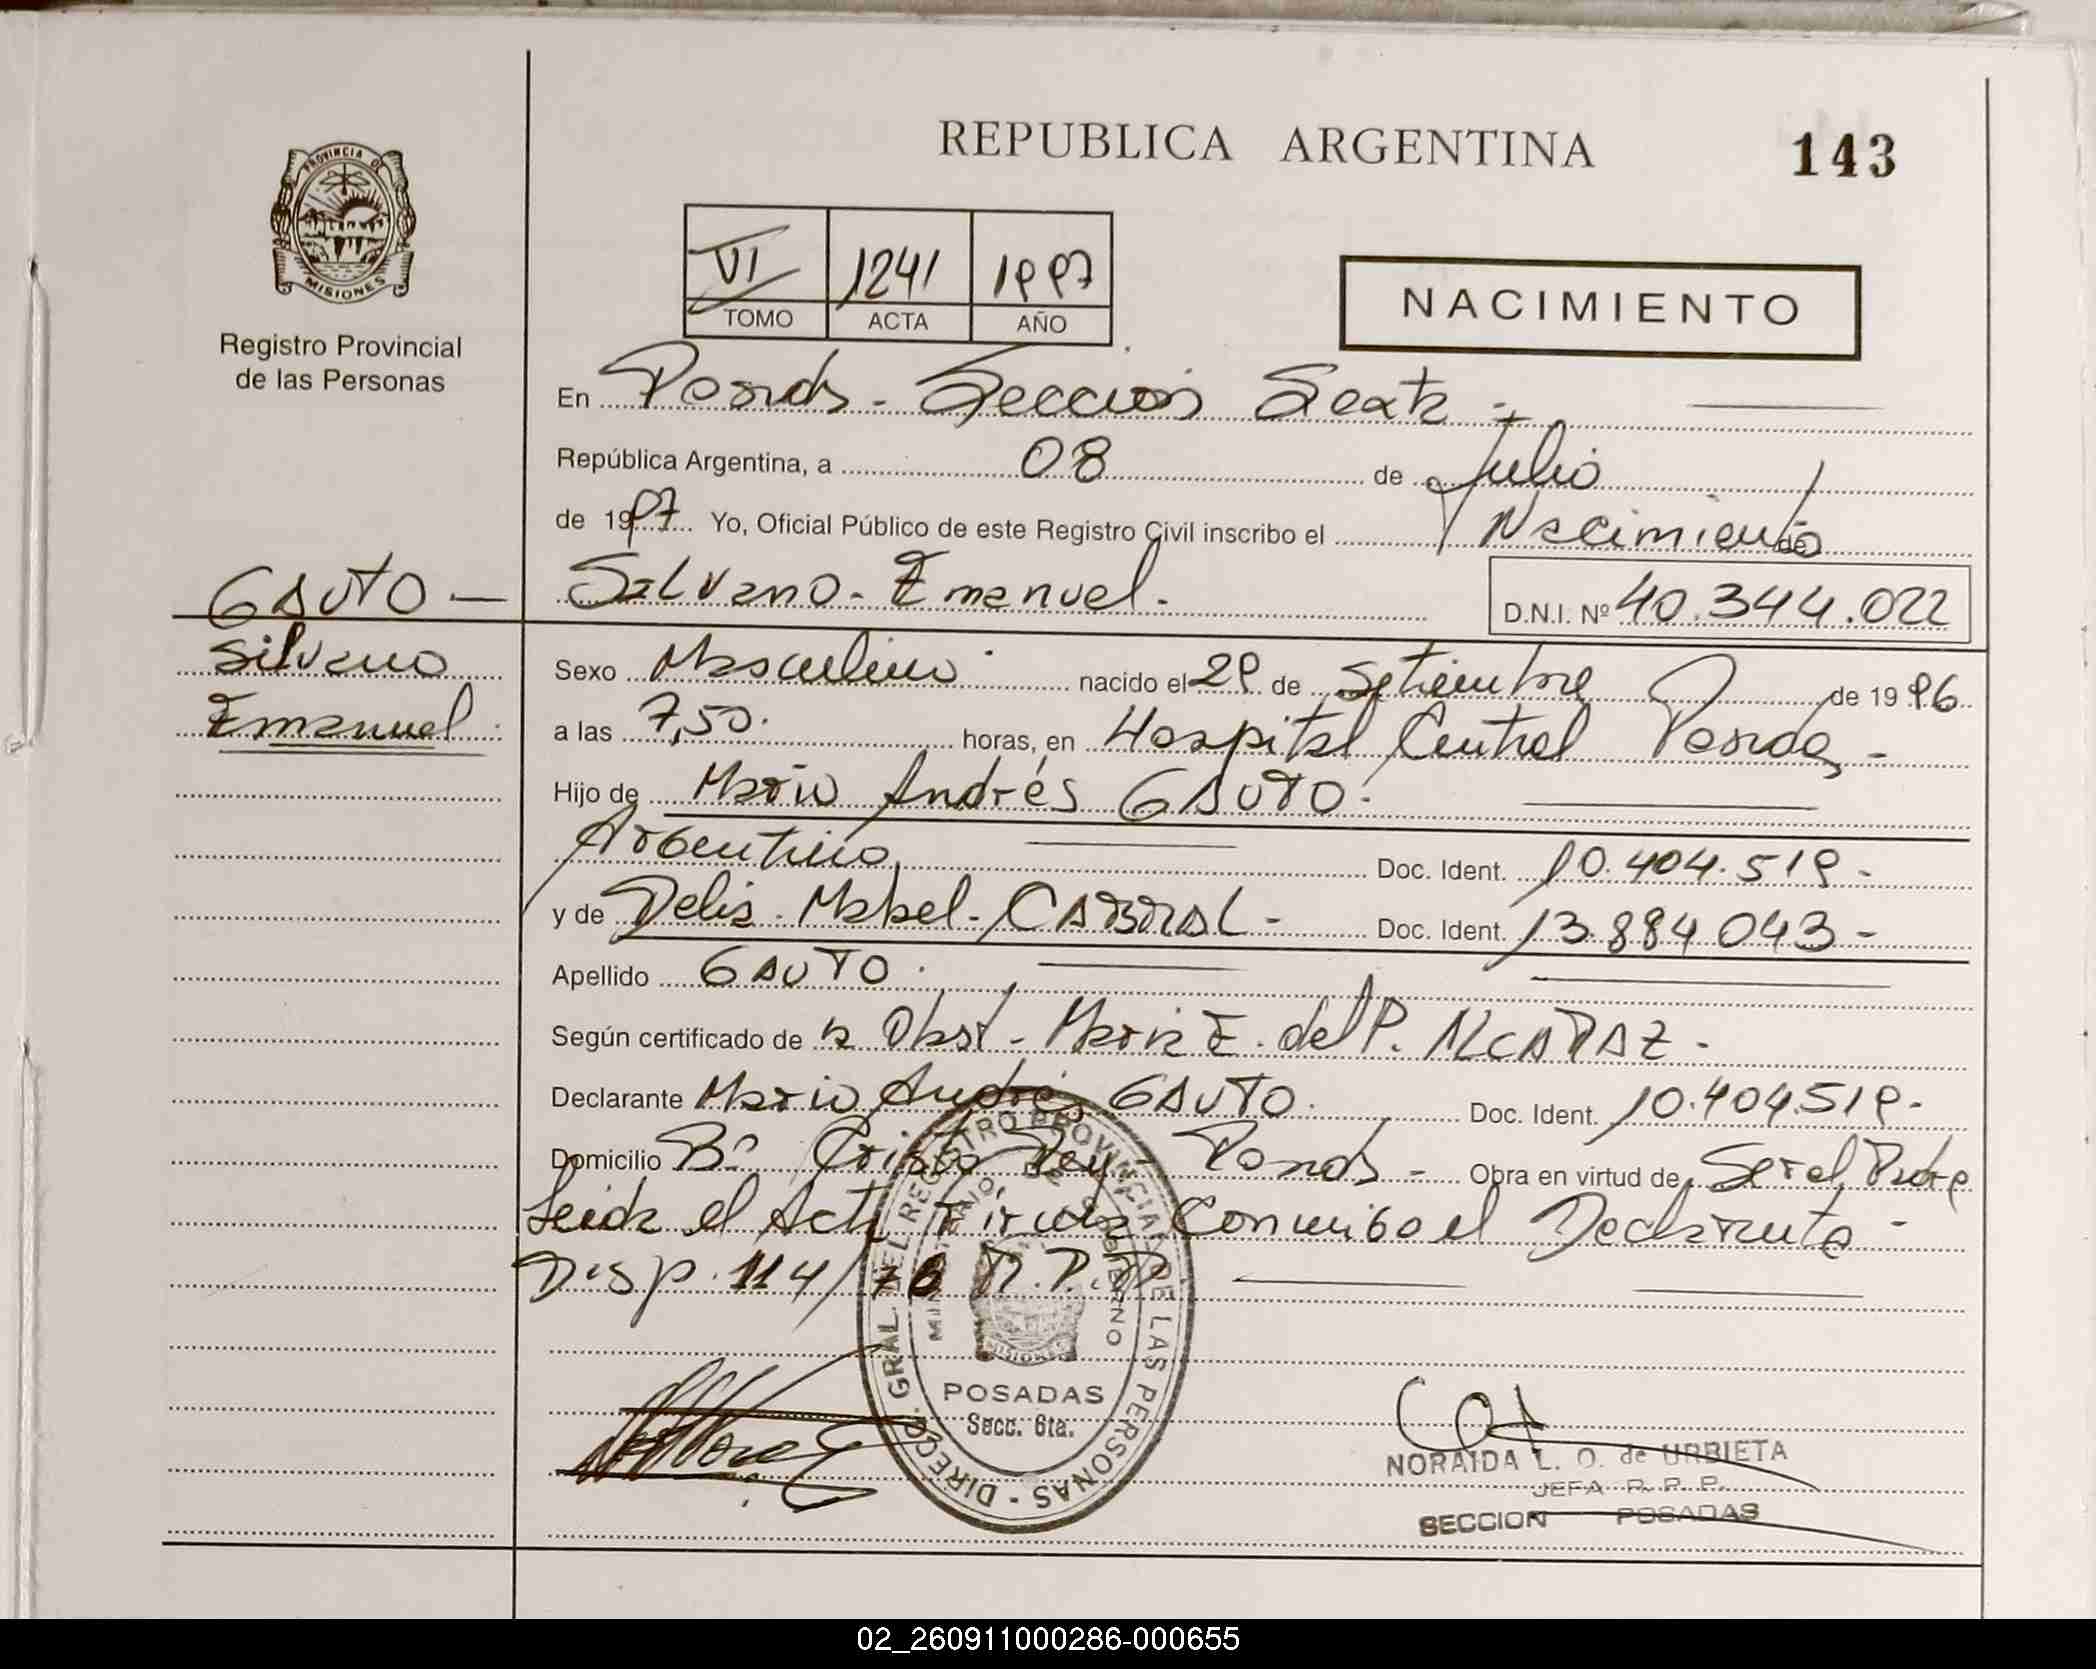 REPUBLICA ARGENTINA
143
PROVINCIA DE MISIONES
Registro Provincial
de las Personas
VI 1241 1997
TOMO ACTA AÑO
NACIMIENTO
En Posadas - Sección Sexta -
República Argentina, a 08 de Julio
de 1997 Yo, Oficial Público de este Registro Civil inscribo el Nacimiento de
GAUTO — Silvano - Emanuel. D.N.I. Nº 40.344.022
Silvano
Emanuel.
Sexo Masculino nacido el 29 de Setiembre de 1996
a las 7,50. horas, en Hospital Central Posadas -
Hijo de Mario Andrés GAUTO.
Argentino Doc. Ident. 10.404.519 -
y de Delia - Mabel - CABRAL - Doc. Ident. 13.884.043 -
Apellido GAUTO.
Según certificado de la Obst. María E. del P. ALCARAZ -
Declarante Mario Andrés GAUTO. Doc. Ident. 10.404.519 -
Domicilio Bº Cristo Rey - Posadas - Obra en virtud de Ser el Padre
Leída el Acta Firma Conmigo el Declarante -
Disp. 114/76 R.P.P.
DIRECC. GRAL. DEL REGISTRO PROVINCIAL DE LAS PERSONAS
MINISTERIO DE GOBIERNO
MISIONES
POSADAS
Secc. 6ta.
NORAIDA L. O. de URBIETA
JEFA R. P. P.
SECCION POSADAS
02_260911000286-000655